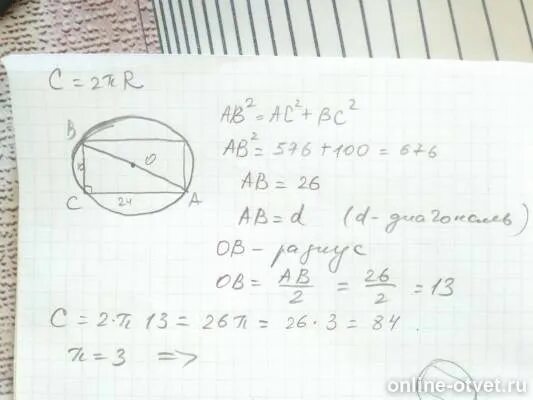 C = 2πR
B
O
C
24
A
AB² = AC² + BC²
AB² = 576 + 100 = 676
AB = 26
AB = d (d - диагональ)
OB - радиус
OB = AB/2 = 26/2 = 13
C = 2·π 13 = 26π = 26·3 = 84
π = 3 =>
online-otvet.ru